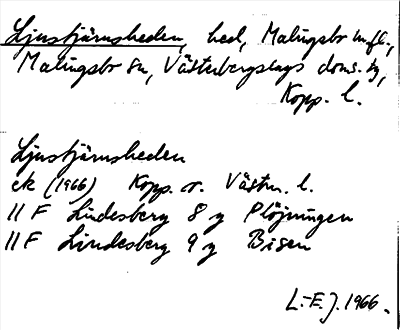 Ljustjärnsheden, hed, Malingsbo m.fl.,
Malingsbo sn, Västerbergslags doms.tg,
Kopp. l.
Ljustjärnsheden
ek (1966) Kopp. o. Västm. l.
11 F Lindesberg 8 g Plöjningen
11 F Lindesberg 9 g Bisen
L.-E.J. 1966.